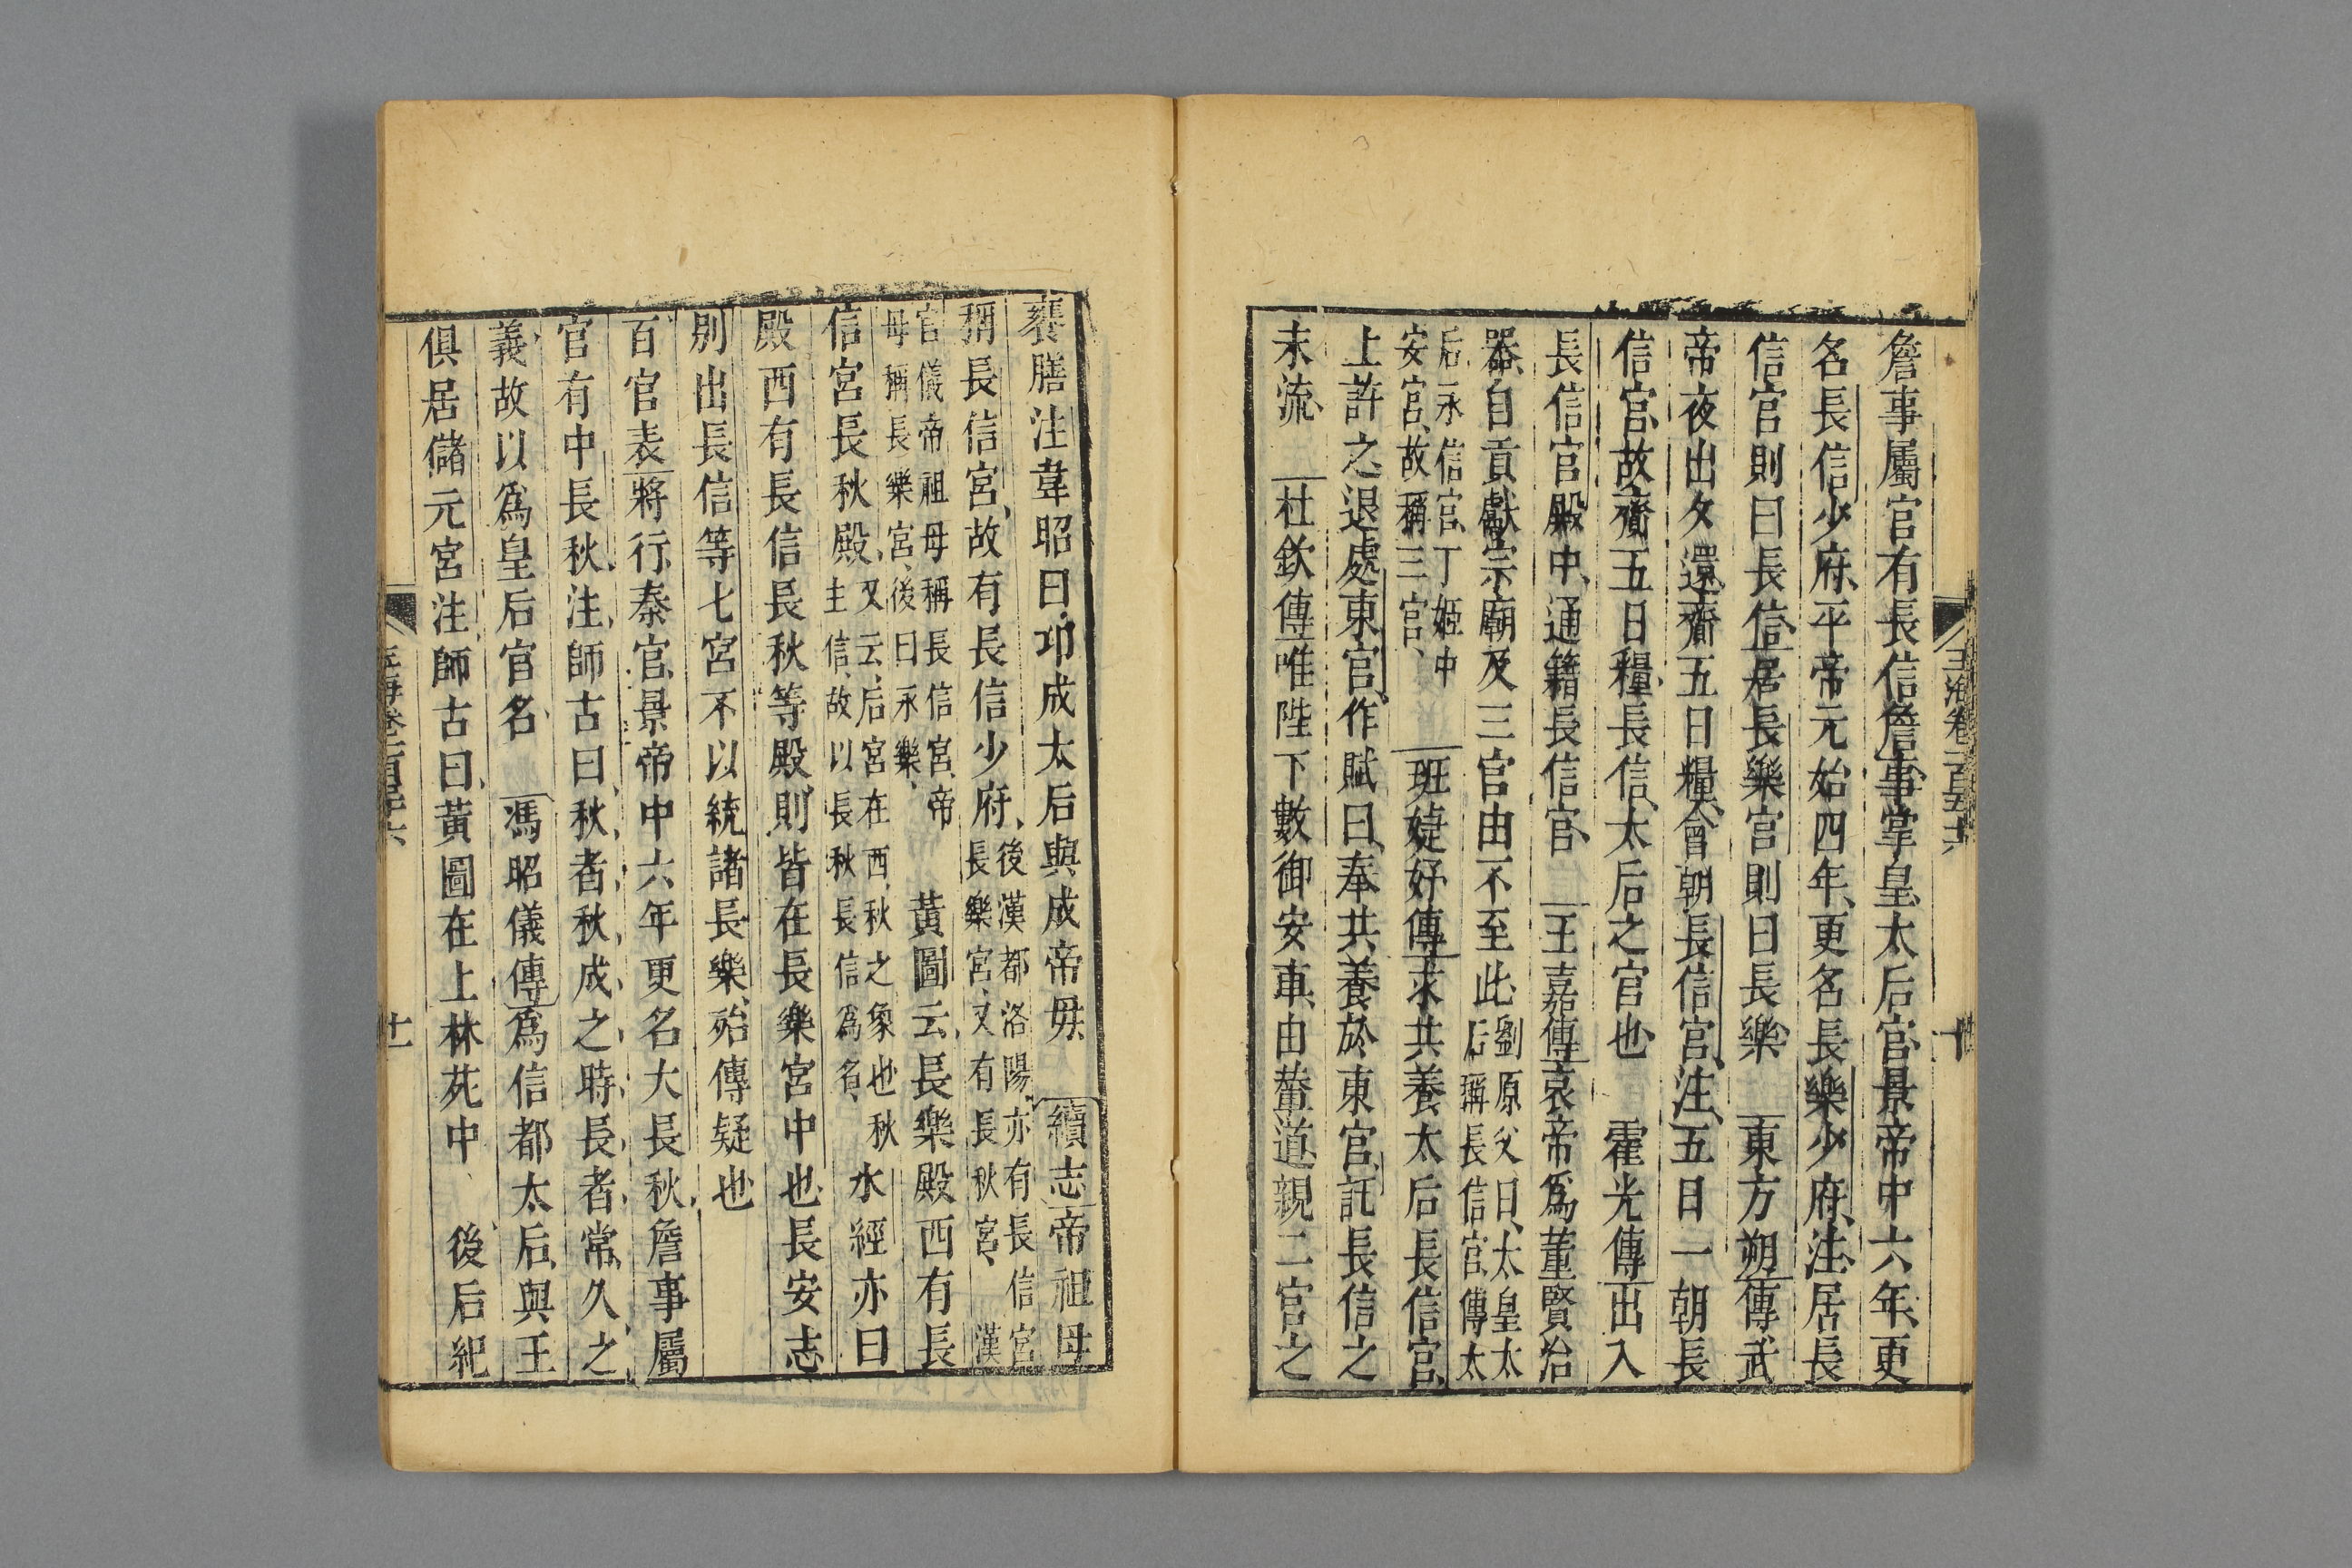 玉海卷一百五十六
十
詹事屬官有長信詹事掌皇太后官景帝中六年更
名長信少府平帝元始四年更名長樂少府注居長
信官則曰長信居長樂宮則曰長樂　東方朔傳武
帝夜出夕還齎五日糧會朝長信宮注五日一朝長
信宮故齎五日糧長信太后之官也　霍光傳出入
長信官殿中通籍長信官　王嘉傳哀帝爲董賢治
器自貢獻宗廟及三官由不至此劉原父曰太皇太
后稱長信宮傅太
后永信官丁姬中
安宮故稱三官　班婕妤傳求共養太后長信官
上許之退處東官作賦曰奉共養於東官託長信之
末流　杜欽傳唯陛下數御安車由輦道親二官之
襃膳注韋昭曰邛成太后與成帝毋　續志帝祖母
稱長信宮故有長信少府後漢都洛陽亦有長信宮
長樂宮又有長秋宮漢
官儀帝祖母稱長信宮帝
母稱長樂宮後曰永樂　黃圖云長樂殿西有長
信宮長秋殿又云后宮在西秋之象也秋
主信故以長秋長信爲名水經亦曰
殿西有長信長秋等殿則皆在長樂宮中也長安志
別出長信等七宮不以統諸長樂殆傳疑也
百官表將行秦官景帝中六年更名大長秋詹事屬
官有中長秋注師古曰秋者秋成之時長者常久之
義故以爲皇后官名　馮昭儀傳爲信都太后與王
俱居儲元宮注師古曰黃圖在上林苑中　後后紀
十一